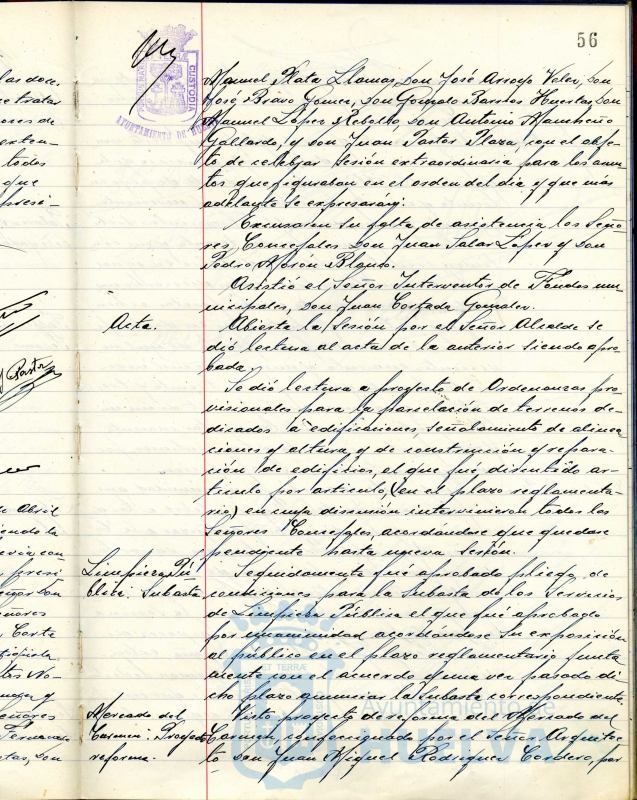 56
Manuel Plata Llamas, Don José Arroyo Veler, Don
José Bravo Gomez, Don Gonzalo Barrios Huertas, Don
Manuel López Rebollo, Don Antonio Mancheño
Gallardo, y Don Juan Pastor Plaza, con el obje-
to de celebrar sesión extraordinaria para los asun-
tos que figuraban en el orden del dia y que más
adelante se expresarán.
Excusaron su falta de asistencia los Seño-
res Concejales Don Juan Salas López y Don
Pedro Morón Blanco.
Asistió el Señor Interventor de Fondos mu-
nicipales, Don Juan Cortada Gonzalez.
Acta.
Abierta la Sesión por el Señor Alcalde se
dió lectura al acta de la anterior siendo apro-
bada.
Se dió lectura a proyecto de Ordenanzas pro-
visionales para la parcelación de terrenos de-
dicados á edificaciones, señalamiento de alinea-
ciones y altura, y de construcción y repara-
ción de edificios, el que fué discutido ar-
ticulo por articulo, (en el plazo reglamenta-
rio) en cuya discusión intervinieron todos los
Señores Concejales, acordándose que quedase
pendiente hasta nueva Sesión.
Limpieza Pú-
blica: Subasta
Seguidamente fué aprobado pliego de
condiciones para la Subasta de los Servicios
de Limpieza Pública el que fué aprobado
por unanimidad acordándose su exposición
al público en el plazo reglamentario junta-
mente con el acuerdo y una vez pasado di-
cho plazo anunciar la subasta correspondiente.
Mercado del
Carmen: Proyecto
reforma.
Visto proyecto de reforma del Mercado del
Carmen confeccionado por el Señor Arquitec-
to Don Juan Miguel Rodriguez Cordero, por
CUSTODIA
AYUNTAMIENTO DE
Ayuntamiento de
HUELVA